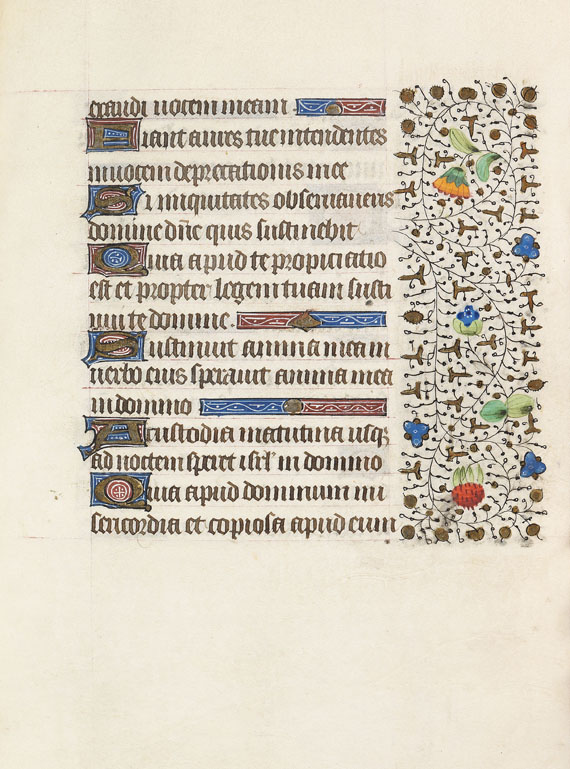 exaudi uocem meam
Fiant aures tue intendentes
in uocem deprecationis mee
Si iniquitates obseruaueris
domine dñe quis sustinebit
Quia apud te propiciatio
est et propter legem tuam susti
nui te domine
Sustinuit anima mea in
uerbo eius sperauit anima mea
in domino
A custodia matutina usq
ad noctem speret isrl in domino
Quia apud dominum mi
sericordia et copiosa apud eum